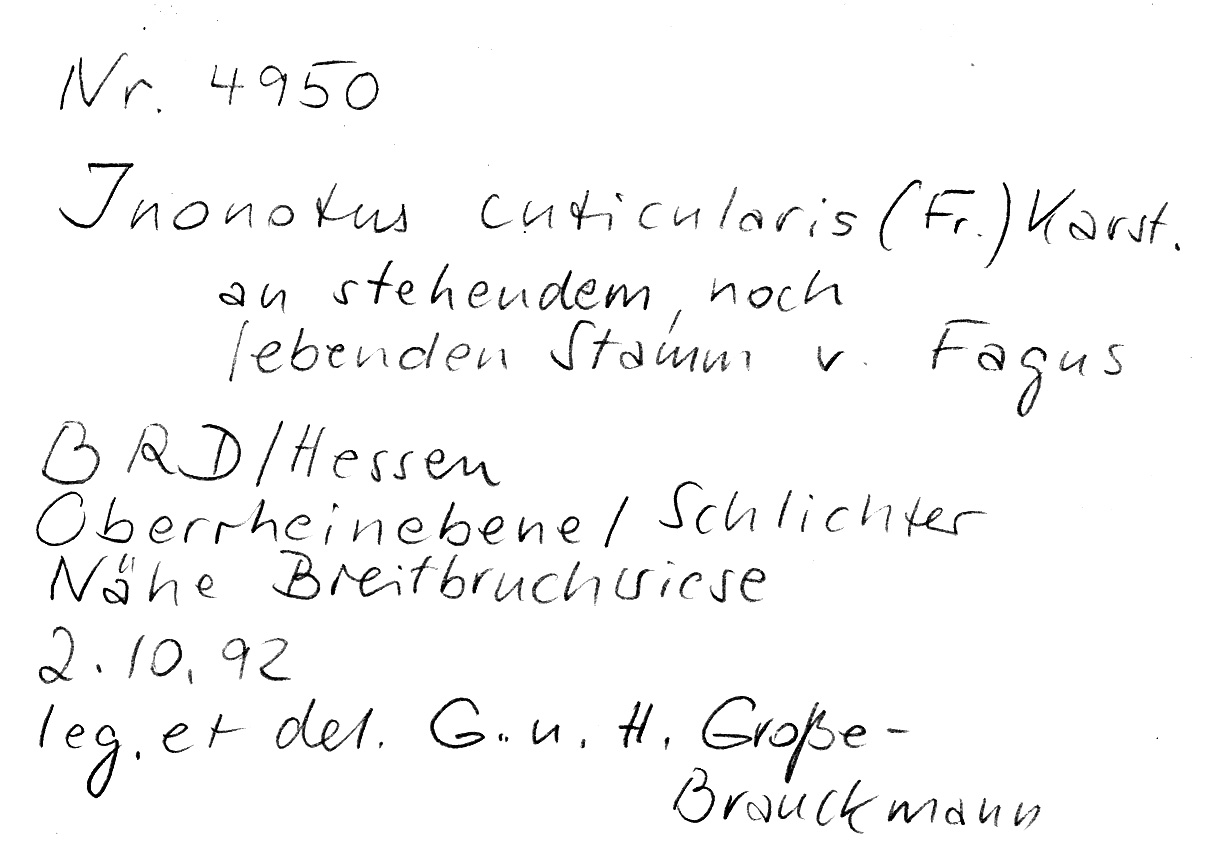 Nr. 4950
Inonotus cuticularis (Fr.) Karst.
an stehendem, noch
lebenden Stamm v. Fagus
BRD/Hessen
Oberrheinebene/Schlichter
Nähe Breitbruchwiese
2.10.92
leg. et det. G. u. H. Große-
Brauckmann